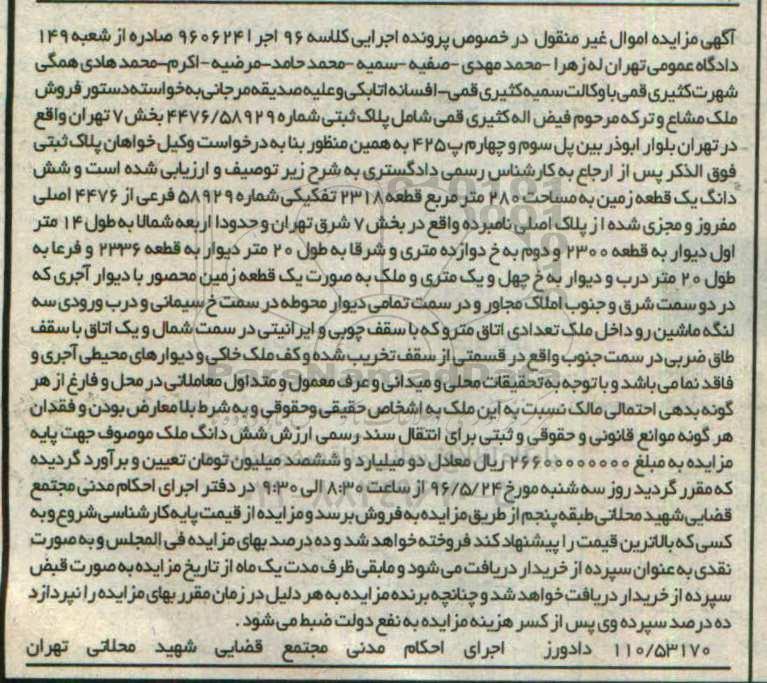 آگهی مزایده اموال غیر منقول در خصوص پرونده اجرایی کلاسه ۹۶ اجرا ۹۶۰۶۲۴ صادره از شعبه ۱۴۹
دادگاه عمومی تهران له زهرا -محمد مهدی -صفیه -سمیه -محمد حامد-مرضیه -اکرم-محمد هادی همگی
شهرت کثیری قمی با وکالت سمیه کثیری قمی-افسانه اتابکی و علیه صدیقه مرجانی به خواسته دستور فروش
ملک مشاع و ترکه مرحوم فیض اله کثیری قمی شامل پلاک ثبتی شماره ۴۴۷۶/۵۸۹۲۹ بخش ۷ تهران واقع
در تهران بلوار ابوذر بین پل سوم و چهارم پ ۴۲۵ به همین منظور بنا به درخواست وکیل خواهان پلاک ثبتی
فوق الذکر پس از ارجاع به کارشناس رسمی دادگستری به شرح زیر توصیف و ارزیابی شده است و شش
دانگ یک قطعه زمین به مساحت ۲۸۰ متر مربع قطعه ۲۳۱۸ تفکیکی شماره ۵۸۹۲۹ فرعی از ۴۴۷۶ اصلی
مفروز و مجزی شده از پلاک اصلی نامبرده واقع در بخش ۷ شرق تهران و حدودا اربعه شمالا به طول ۱۴ متر
اول دیوار به قطعه ۲۳۰۰ و دوم به خ دوازده متری و شرقا به طول ۲۰ متر دیوار به قطعه ۲۳۳۶ و فرعا به
طول ۲۰ متر درب و دیوار به خ چهل و یک متری و ملک به صورت یک قطعه زمین محصور با دیوار آجری که
در دو سمت شرق و جنوب املاک مجاور و در سمت تمامی دیوار محوطه در سمت خ سیمانی و درب ورودی سه
لنگه ماشین رو داخل ملک تعدادی اتاق متروکه با سقف چوبی و ایرانیتی در سمت شمال و یک اتاق با سقف
طاق ضربی در سمت جنوب واقع در قسمتی از سقف تخریب شده و کف ملک خاکی و دیوارهای محیطی آجری و
فاقد نما می باشد و با توجه به تحقیقات محلی و میدانی و عرف معمول و متداول معاملاتی در محل و فارغ از هر
گونه بدهی احتمالی مالک نسبت به این ملک به اشخاص حقیقی وحقوقی و به شرط بلا معارض بودن و فقدان
هر گونه موانع قانونی و حقوقی و ثبتی برای انتقال سند رسمی ارزش شش دانگ ملک موصوف جهت پایه
مزایده به مبلغ ۲۶۶۰۰۰۰۰۰۰۰ ریال معادل دو میلیارد و ششصد میلیون تومان تعیین و برآورد گردیده
که مقرر گردید روز سه شنبه مورخ ۹۶/۵/۲۴ از ساعت ۸:۳۰ الی ۹:۳۰ در دفتر اجرای احکام مدنی مجتمع
قضایی شهید محلاتی طبقه پنجم از طریق مزایده به فروش برسد و مزایده از قیمت پایه کارشناسی شروع و به
کسی که بالاترین قیمت را پیشنهاد کند فروخته خواهد شد و ده درصد بهای مزایده فی المجلس و به صورت
نقدی به عنوان سپرده از خریدار دریافت می شود و مابقی ظرف مدت یک ماه از تاریخ مزایده به صورت قبض
سپرده از خریدار دریافت خواهد شد و چنانچه برنده مزایده به هر دلیل در زمان مقرر بهای مزایده را نپردازد
ده درصد سپرده وی پس از کسر هزینه مزایده به نفع دولت ضبط می شود .
۱۱۰/۵۳۱۷۰ دادورز اجرای احکام مدنی مجتمع قضایی شهید محلاتی تهران
ParsNamadData